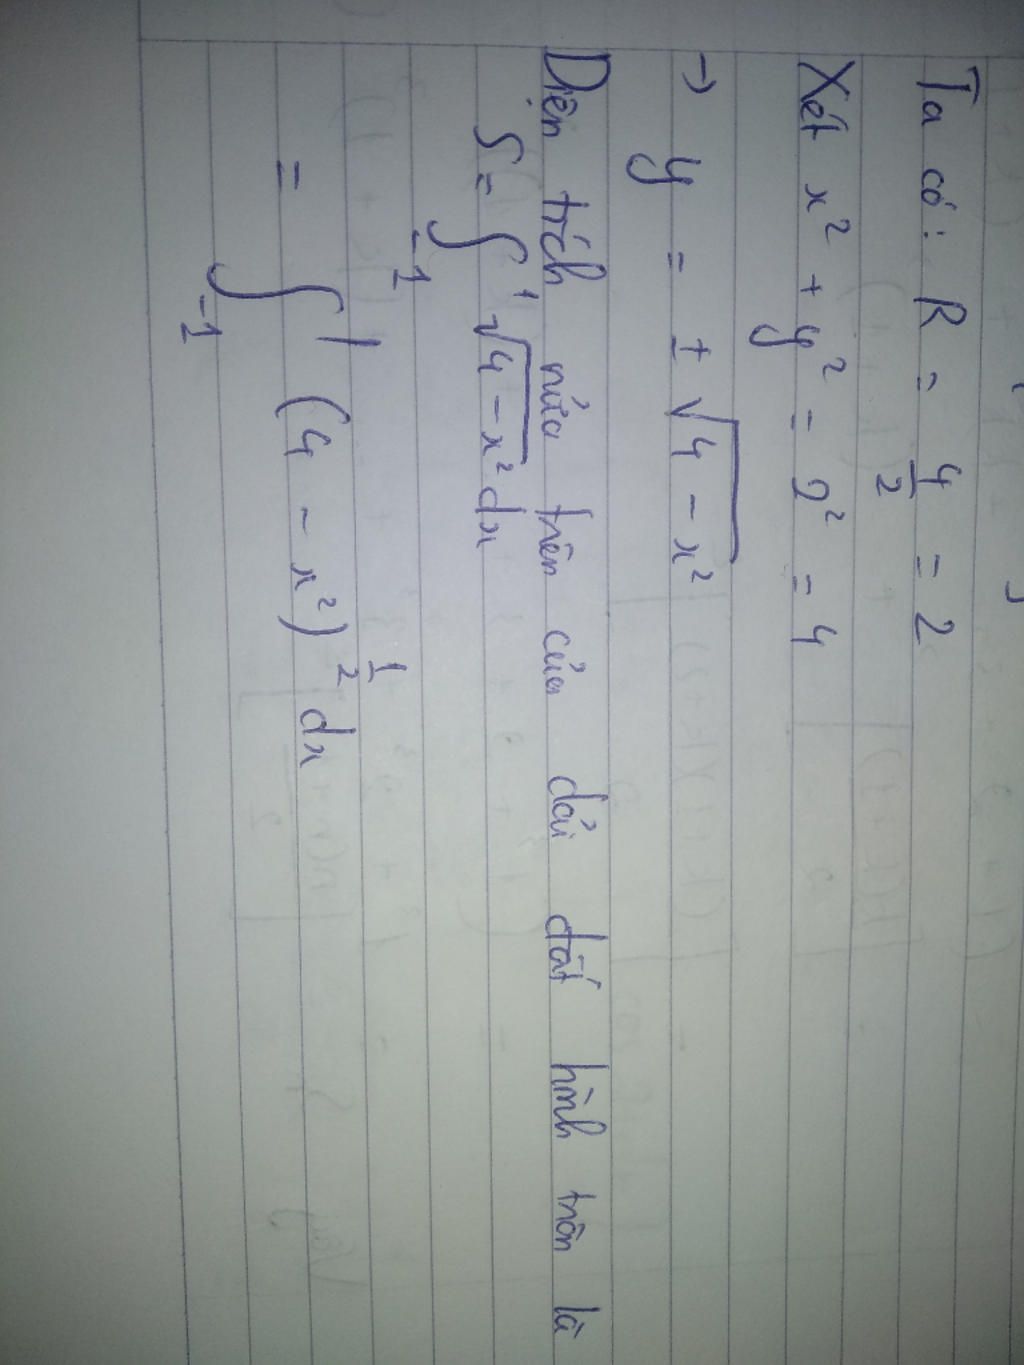 Ta có: R = 4/2 = 2
Xét x² + y² = 2² = 4
→ y = ± √(4 - x²)
Diện tích nửa trên của dải đất hình tròn là
S = ∫₋₁¹ √(4 - x²) dx
= ∫₋₁¹ (4 - x²)^(1/2) dx